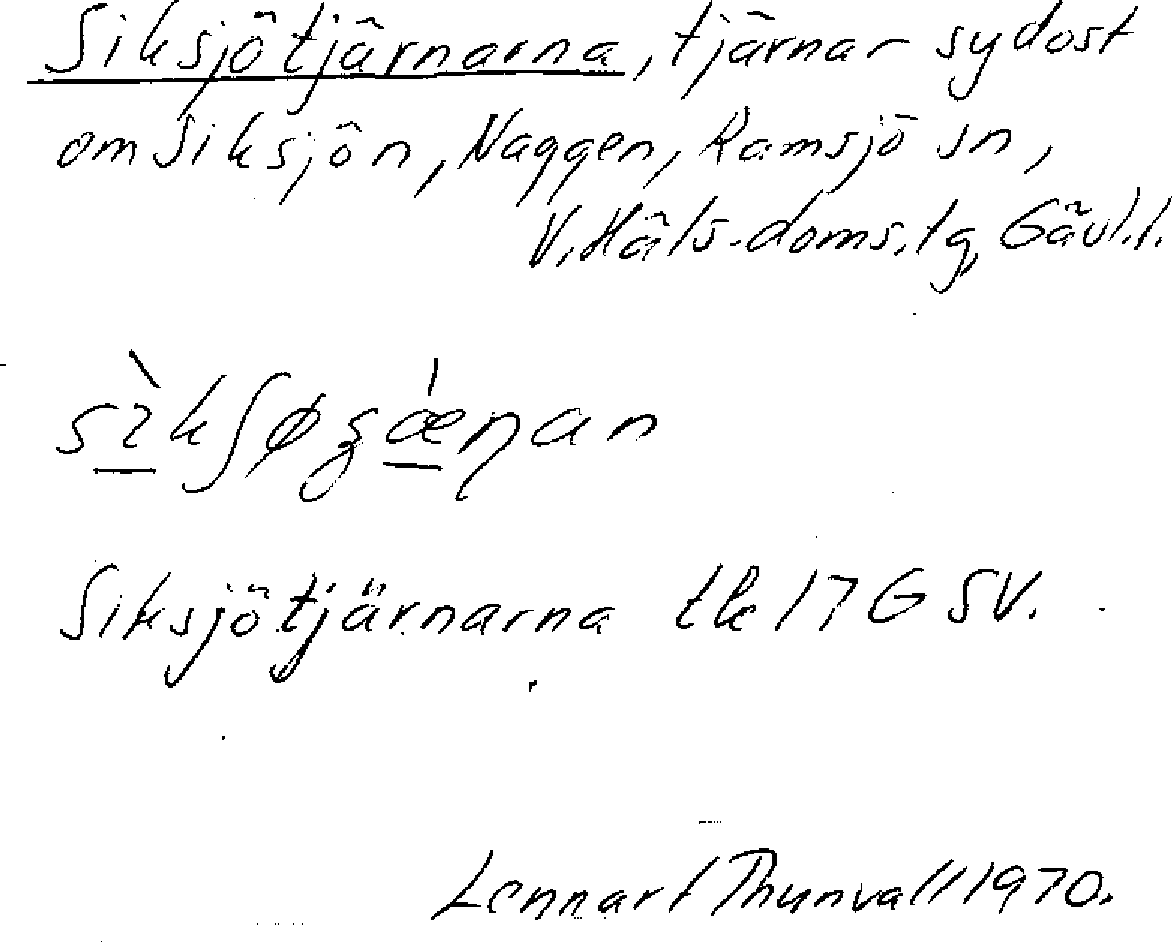 Siksjötjärnarna, tjärnar sydost
om Siksjön, Naggen, Ramsjö sn,
V. Häls. doms. tg, Gävl. l.
Siksjötjärnarna tk 17 G SV.
Lennart Thunvall 1970.